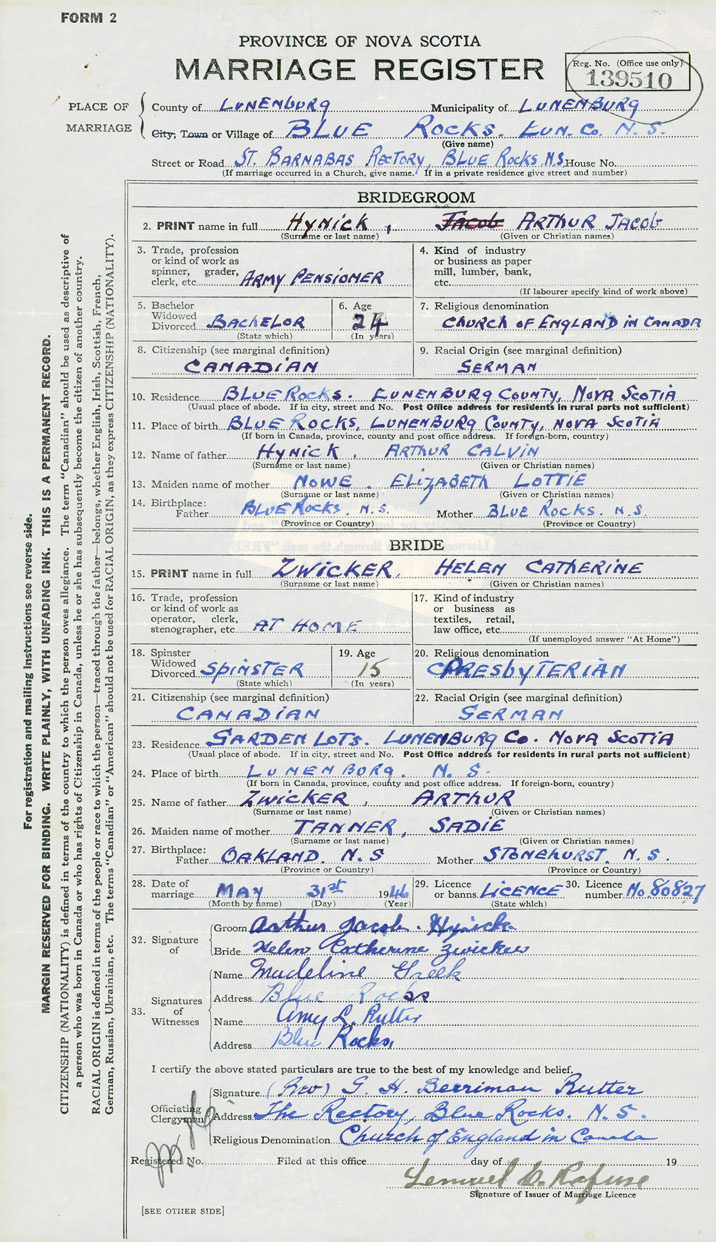 FORM 2
PROVINCE OF NOVA SCOTIA
MARRIAGE REGISTER
Reg. No. (Office use only)
139510
PLACE OF MARRIAGE
County of LUNENBURG Municipality of LUNENBURG
City, Town or Village of BLUE ROCKS. LUN. CO. N. S.
(Give name)
Street or Road ST. BARNABAS RECTORY, BLUE ROCKS N.S. House No.
(If marriage occurred in a Church, give name. If in a private residence give street and number)
BRIDEGROOM
2. PRINT name in full HYNICK, Jacob ARTHUR JACOB
(Surname or last name) (Given or Christian names)
3. Trade, profession or kind of work as spinner, grader, clerk, etc. ARMY PENSIONER
4. Kind of industry or business as paper mill, lumber, bank, etc.
(If labourer specify kind of work above)
5. Bachelor Widowed Divorced BACHELOR
(State which)
6. Age 24
(In years)
7. Religious denomination
CHURCH OF ENGLAND IN CANADA
8. Citizenship (see marginal definition)
CANADIAN
9. Racial Origin (see marginal definition)
GERMAN
10. Residence BLUE ROCKS. LUNENBURG COUNTY, NOVA SCOTIA
(Usual place of abode. If in city, street and No. Post Office address for residents in rural parts not sufficient)
11. Place of birth BLUE ROCKS, LUNENBURG COUNTY, NOVA SCOTIA
(If born in Canada, province, county and post office address. If foreign-born, country)
12. Name of father HYNICK, ARTHUR CALVIN
(Surname or last name) (Given or Christian names)
13. Maiden name of mother NOWE. ELIZABETH LOTTIE
(Surname or last name) (Given or Christian names)
14. Birthplace: Father BLUE ROCKS. N.S. Mother BLUE ROCKS. N.S.
(Province or Country) (Province or Country)
BRIDE
15. PRINT name in full ZWICKER, HELEN CATHERINE
(Surname or last name) (Given or Christian names)
16. Trade, profession or kind of work as operator, clerk, stenographer, etc. AT HOME
17. Kind of industry or business as textiles, retail, law office, etc.
(If unemployed answer "At Home")
18. Spinster Widowed Divorced SPINSTER
(State which)
19. Age 15
(In years)
20. Religious denomination
PRESBYTERIAN
21. Citizenship (see marginal definition)
CANADIAN
22. Racial Origin (see marginal definition)
GERMAN
23. Residence GARDEN LOTS. LUNENBURG Co. NOVA SCOTIA
(Usual place of abode. If in city, street and No. Post Office address for residents in rural parts not sufficient)
24. Place of birth LUNENBURG. N. S.
(If born in Canada, province, county and post office address. If foreign-born, country)
25. Name of father ZWICKER, ARTHUR
(Surname or last name) (Given or Christian names)
26. Maiden name of mother TANNER, SADIE
(Surname or last name) (Given or Christian names)
27. Birthplace: Father OAKLAND. N.S Mother STONEHURST. N. S.
(Province or Country) (Province or Country)
28. Date of marriage MAY 31st 1946
(Month by name) (Day) (Year)
29. Licence or banns LICENCE
(State which)
30. Licence number No. 80827
32. Signature of
Groom Arthur Jacob Hynick
Bride Helen Catherine Zwicker
33. Signatures of Witnesses
Name Madeline Greek
Address Blue Rocks
Name Amy L. Rutter
Address Blue Rocks,
I certify the above stated particulars are true to the best of my knowledge and belief.
Officiating Clergyman
Signature (Rev) G. H. Berriman Rutter
Address The Rectory, Blue Rocks. N. S.
Religious Denomination Church of England in Canada
Registered No. Filed at this office day of 19
Lemuel D. Rafuse
Signature of Issuer of Marriage Licence
[SEE OTHER SIDE]
For registration and mailing instructions see reverse side.
MARGIN RESERVED FOR BINDING. WRITE PLAINLY, WITH UNFADING INK. THIS IS A PERMANENT RECORD.
CITIZENSHIP (NATIONALITY) is defined in terms of the country to which the person owes allegiance. The term "Canadian" should be used as descriptive of
a person who was born in Canada or who has rights of Citizenship in Canada, unless he or she has subsequently become the citizen of another country.
RACIAL ORIGIN is defined in terms of the people or race to which the person—traced through the father—belongs, whether English, Irish, Scottish, French,
German, Russian, Ukrainian, etc. The terms "Canadian" or "American" should not be used for RACIAL ORIGIN, as they express CITIZENSHIP (NATIONALITY).